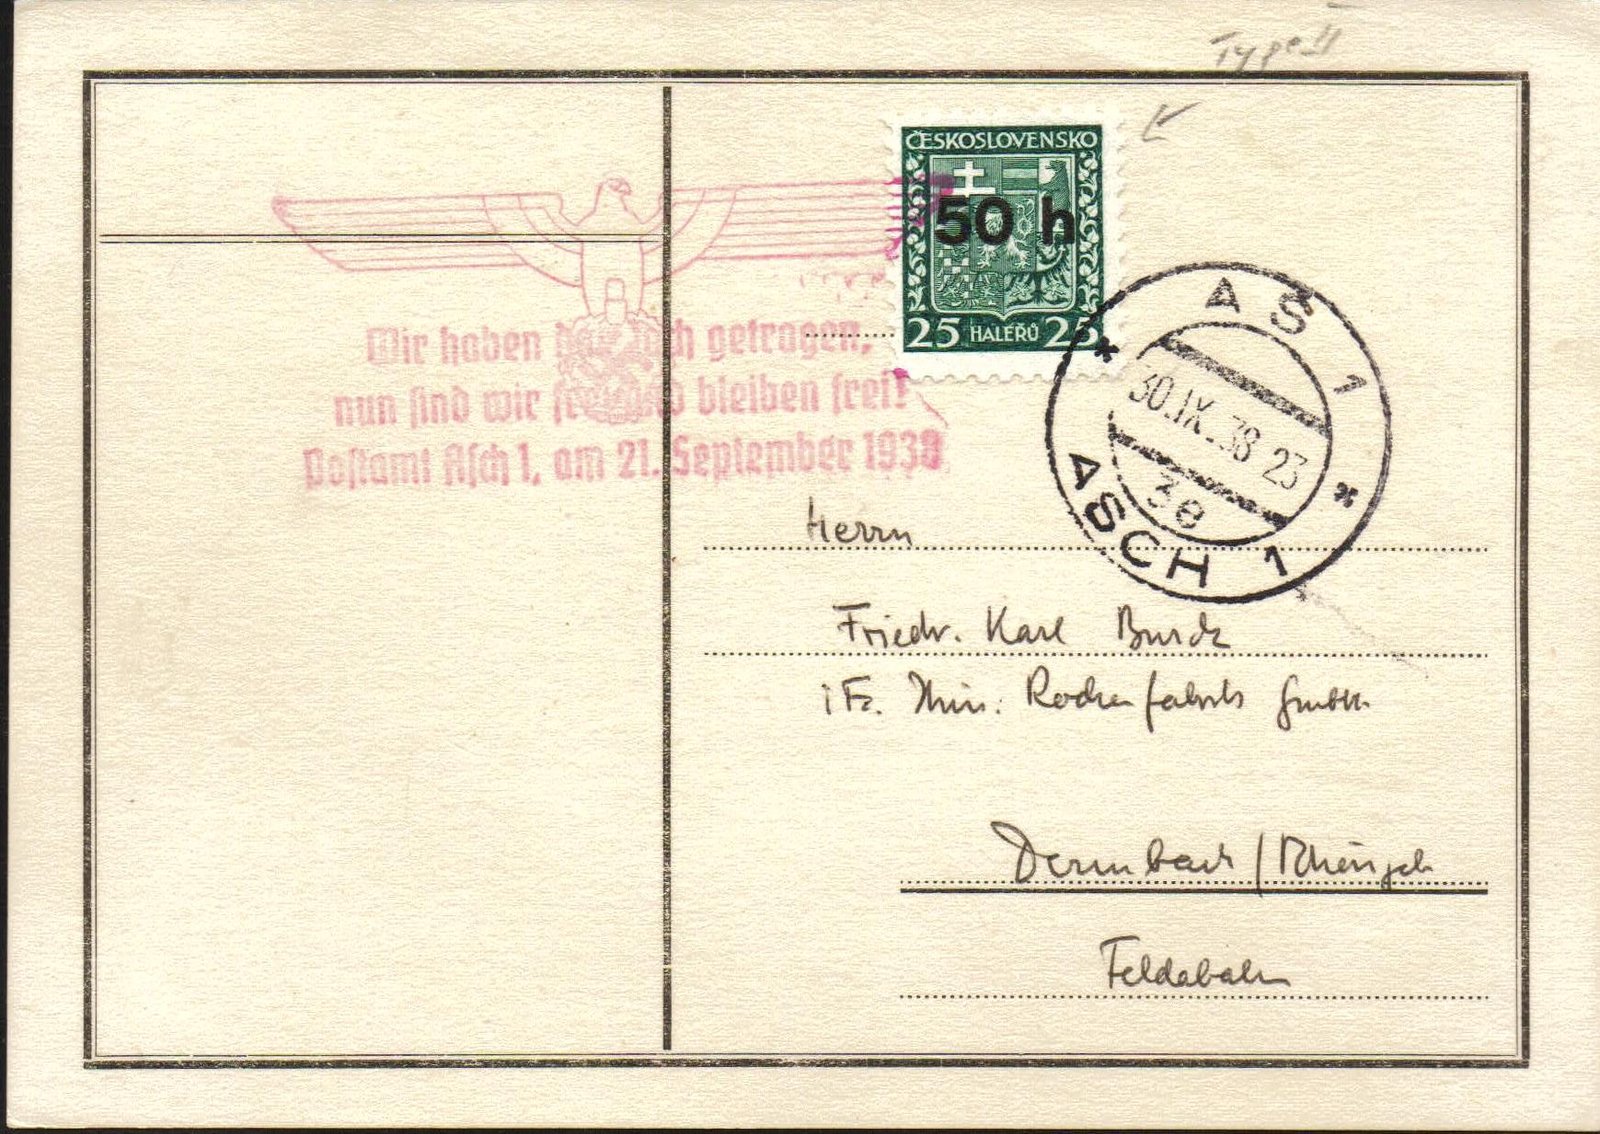 Type II
ČESKOSLOVENSKO
50 h
25 HALÉŘŮ 25
Wir haben das Joch getragen,
nun sind wir frei und bleiben frei!
Postamt Asch 1, am 21. September 1938
AŠ 1
30.IX.38 23
3e
ASCH 1
Herrn
Friedr. Karl
i Fa. GmbH
Dermbach / Rhöngeb
Feldabahn